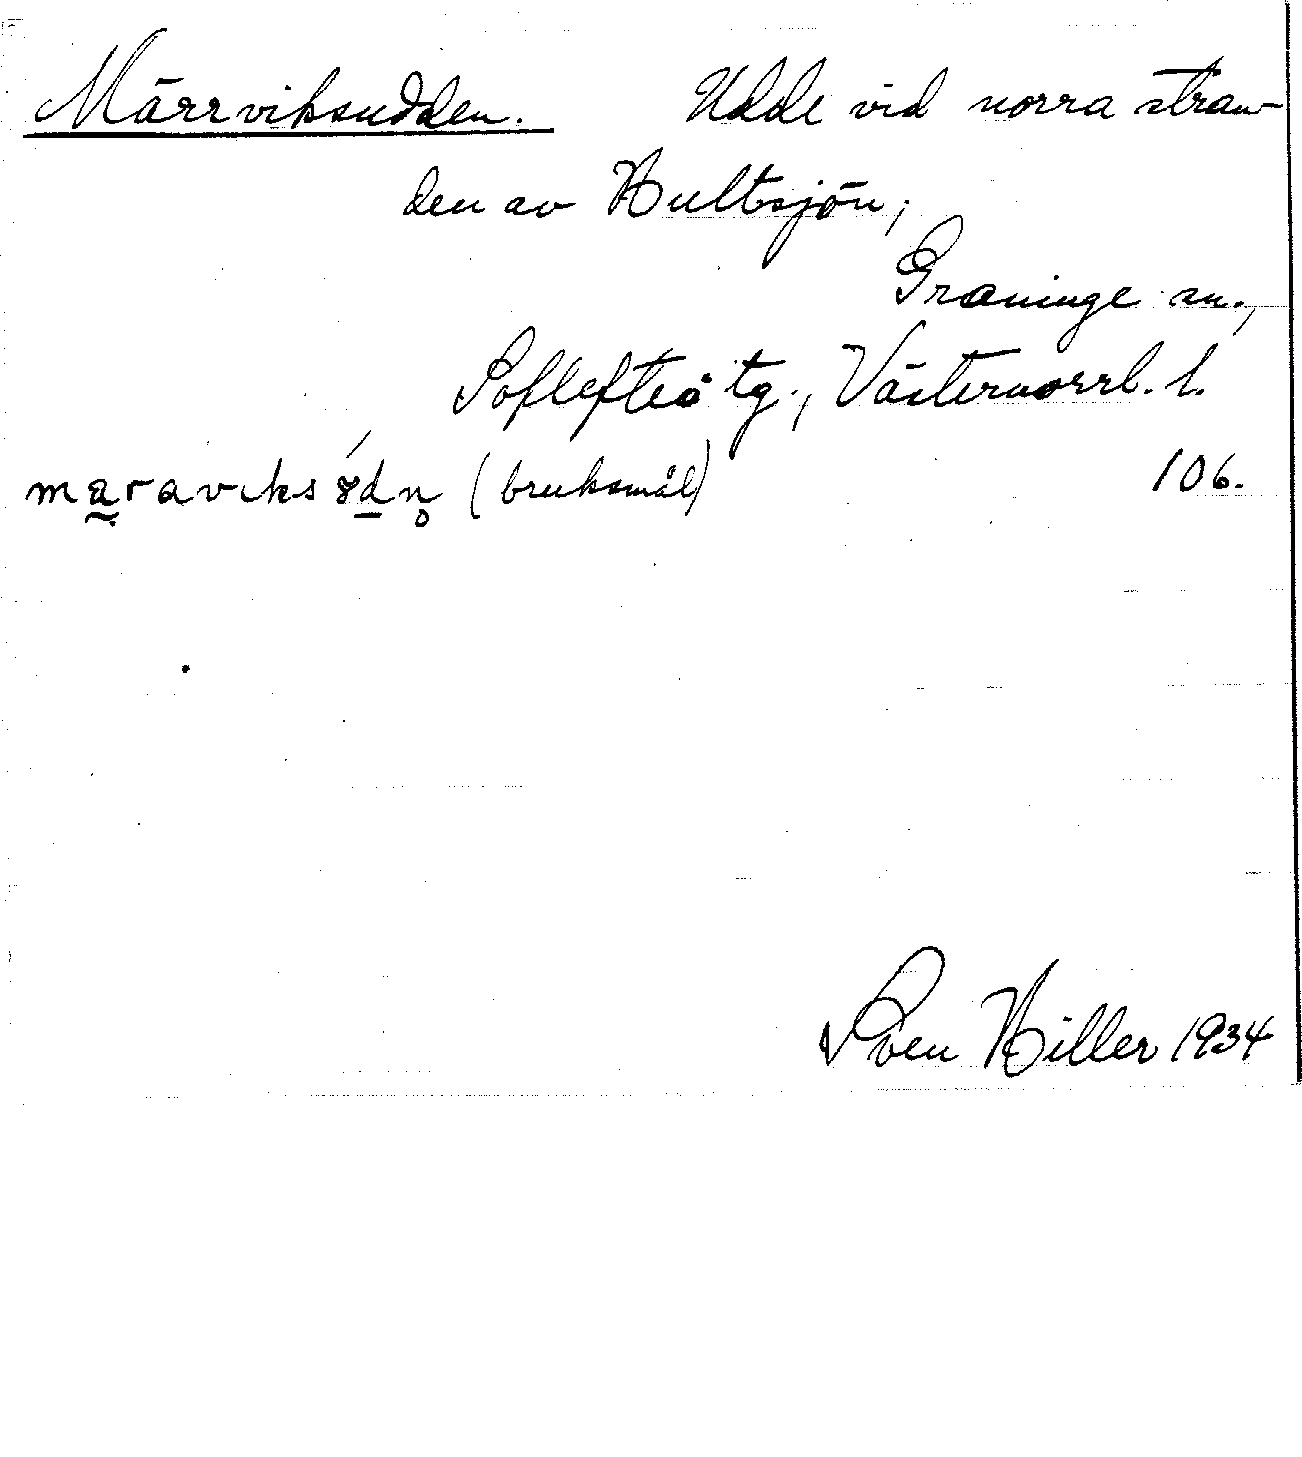 Märrviksudden. Udde vid norra stran-
den av Hultsjön,
Graninge sn.,
Sollefteå tg., Västernorrl. l.
maravıksödn̥ (bruksmål) 106.
Sven Hiller 1934